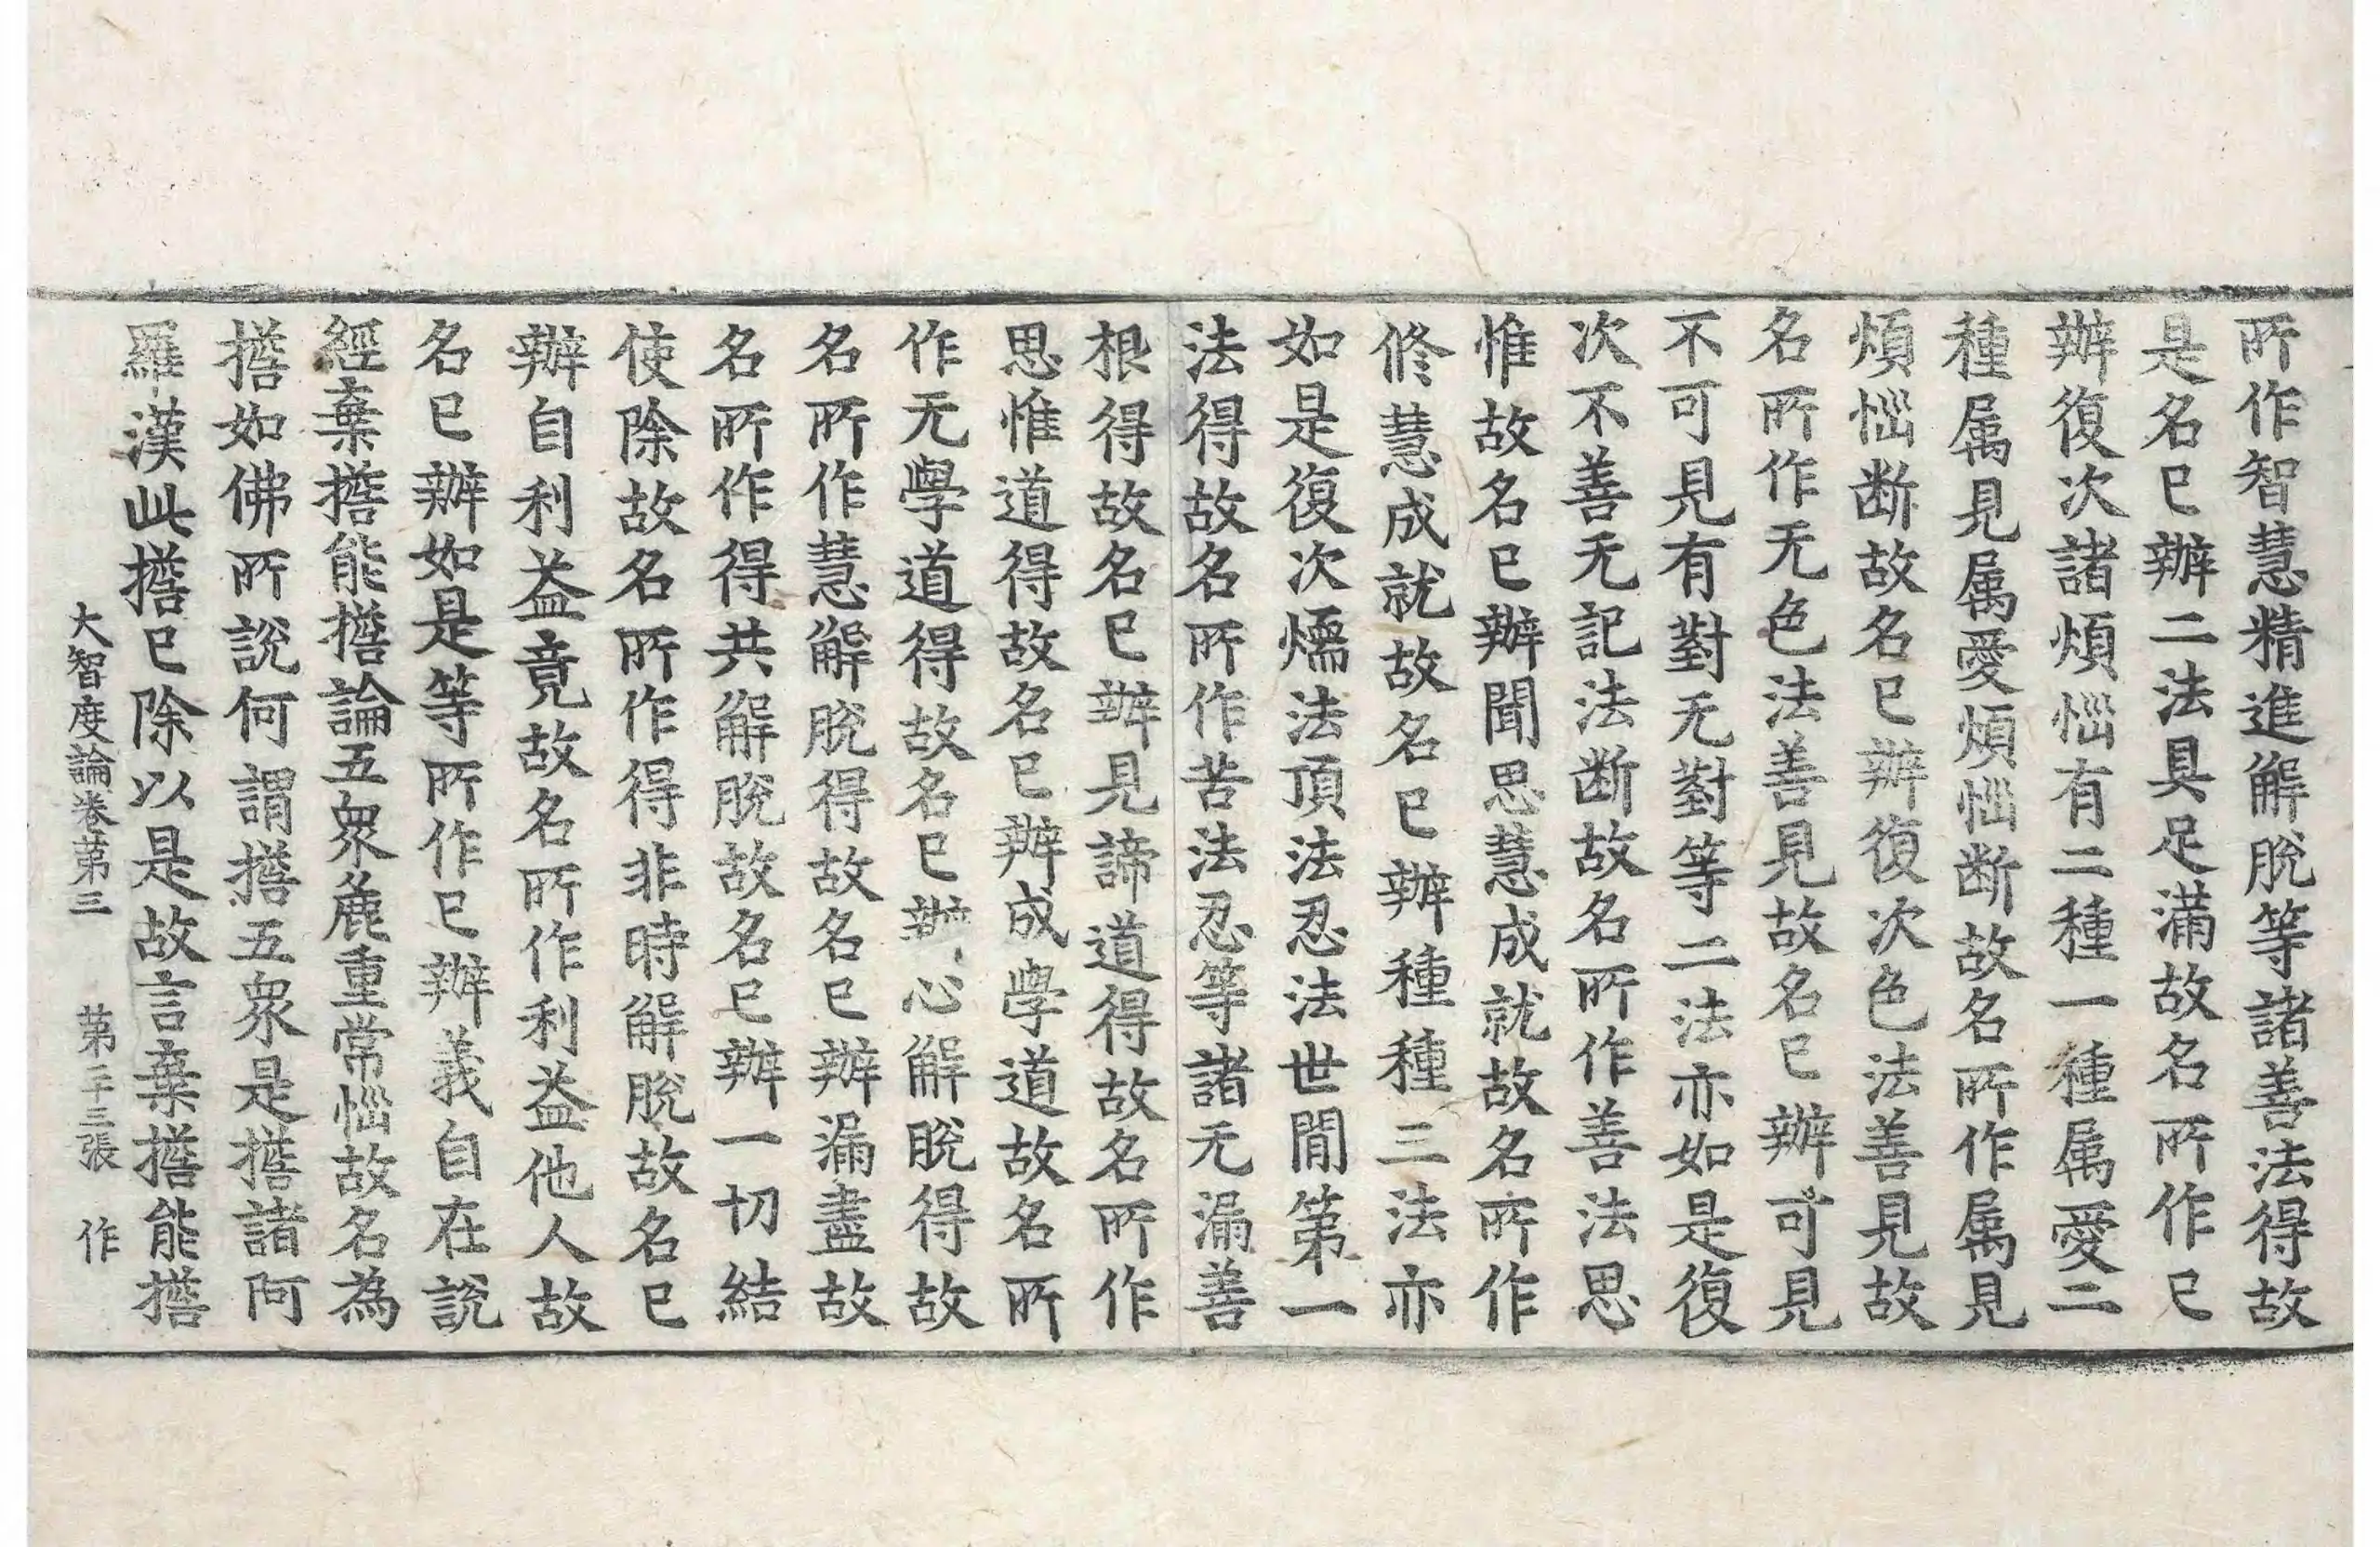 所作智慧精進解脫等諸善法得故
是名已辦二法具足滿故名所作已
辦復次諸煩惱有二種一種属愛二
種属見属愛煩惱断故名所作属見
煩惱断故名已辦復次色法善見故
名所作无色法善見故名已辦可見
不可見有對无對等二法亦如是復
次不善无記法断故名所作善法思
惟故名已辦聞思慧成就故名所作
修慧成就故名已辦種種三法亦
如是復次燸法頂法忍法世間第一
法得故名所作苦法忍等諸无漏善
根得故名已辦見諦道得故名所作
思惟道得故名已辦成學道故名所
作无學道得故名已辦心解脫得故
名所作慧解脫得故名已辦漏盡故
名所作得共解脫故名已辦一切結
使除故名所作得非時解脫故名已
辦自利益竟故名所作利益他人故
名已辦如是等所作已辦義自在說
經棄擔能擔論五衆麁重常惱故名為
擔如佛所說何謂擔五衆是擔諸阿
羅漢此擔已除以是故言棄擔能擔
大智度論卷第三 第二十三張 作